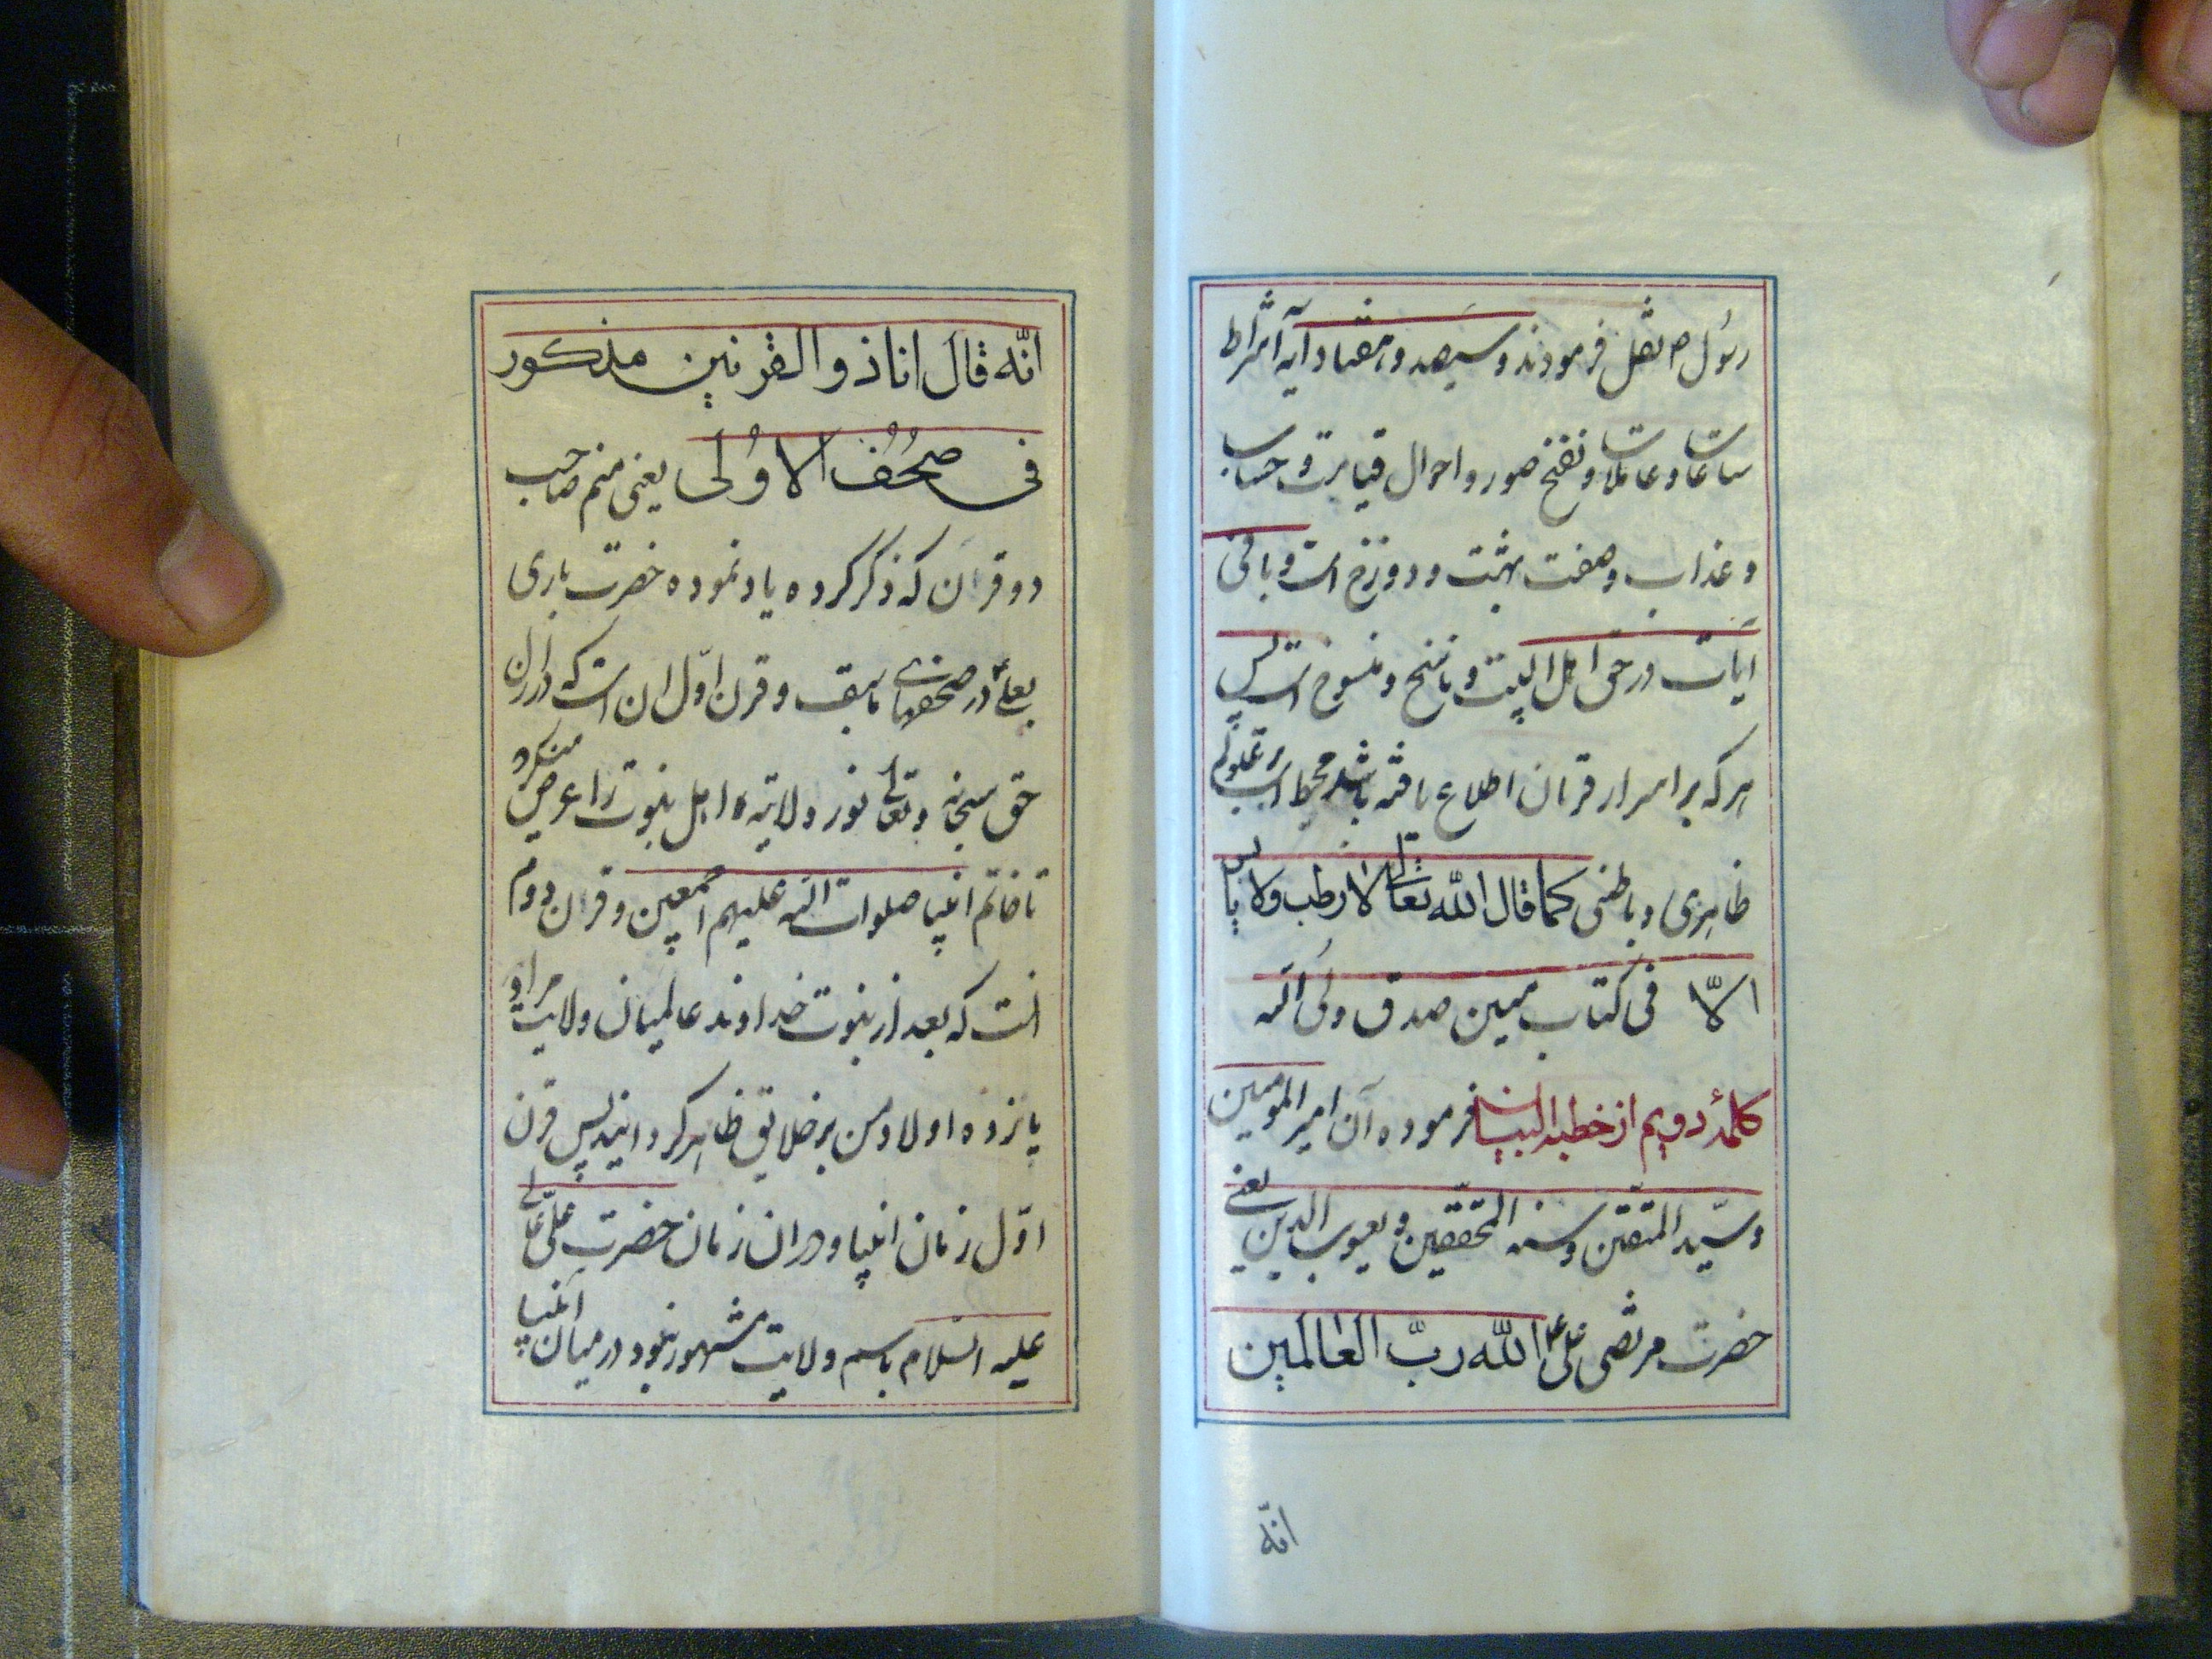 رسول ص نقل فرمودند و سیصد و هفتاد آیه اشراط
ساعات و علامات و نفخ صور و احوال قیامت و حساب
و عذاب و صفت بهشت و دوزخ است و باقی
آیات در حق اهل البیت و ناسخ و منسوخ است پس
هر که بر اسرار قرآن اطلاع یافته باشد محیط است بر علوم
ظاهری و باطنی کما قال الله تعالی لا رطب ولا یابس
الا فی کتاب مبین صدق ولی الله
کلمهٔ دویم از خطبة البیان فرموده آن امیر المومنین
و سید المتقین و سند المحققین و یعسوب الدین یعنی
حضرت مرتضی علی الله رب العالمین
انّه
انّه قال انا ذو القرنین مذکور
فی صحف الاولی یعنی منم صاحب
دو قرن که ذکر کرده یاد نموده حضرت باری
تعالی در صحفهای ماسبق و قرن اول ان است که در ازل
حق سبحانه و تعالی نور ولایته اهل نبوت را عرض میکرد
تا خاتم انبیا صلوات الله علیهم اجمعین و قرن دوم
انست که بعد از نبوت خداوند عالمیان ولایت مرا و
یازده اولاد من بر خلایق ظاهر گردانید پس قرن
اول زمان انبیا و در ان زمان حضرت علی عالی
علیه السلام باسم ولایت مشهور نبود در میان انبیا